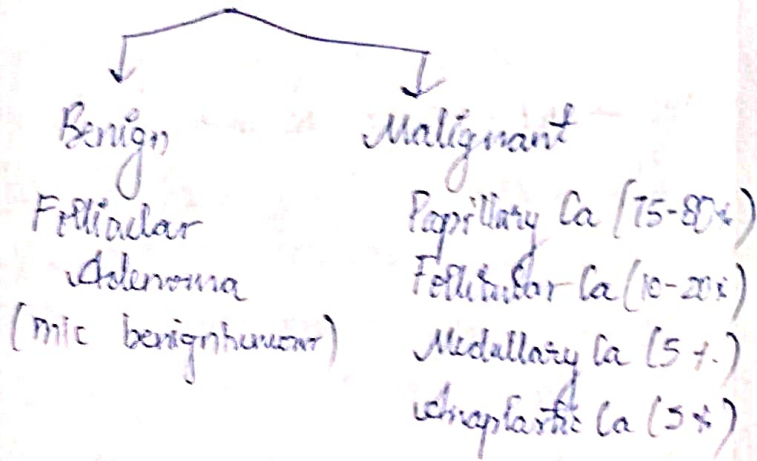 Benign
Malignant
Follicular
Adenoma
(m/c benign tumour)
Papillary Ca (75-80%)
Follicular Ca (10-20%)
Medullary Ca (5%)
Anaplastic Ca (5%)